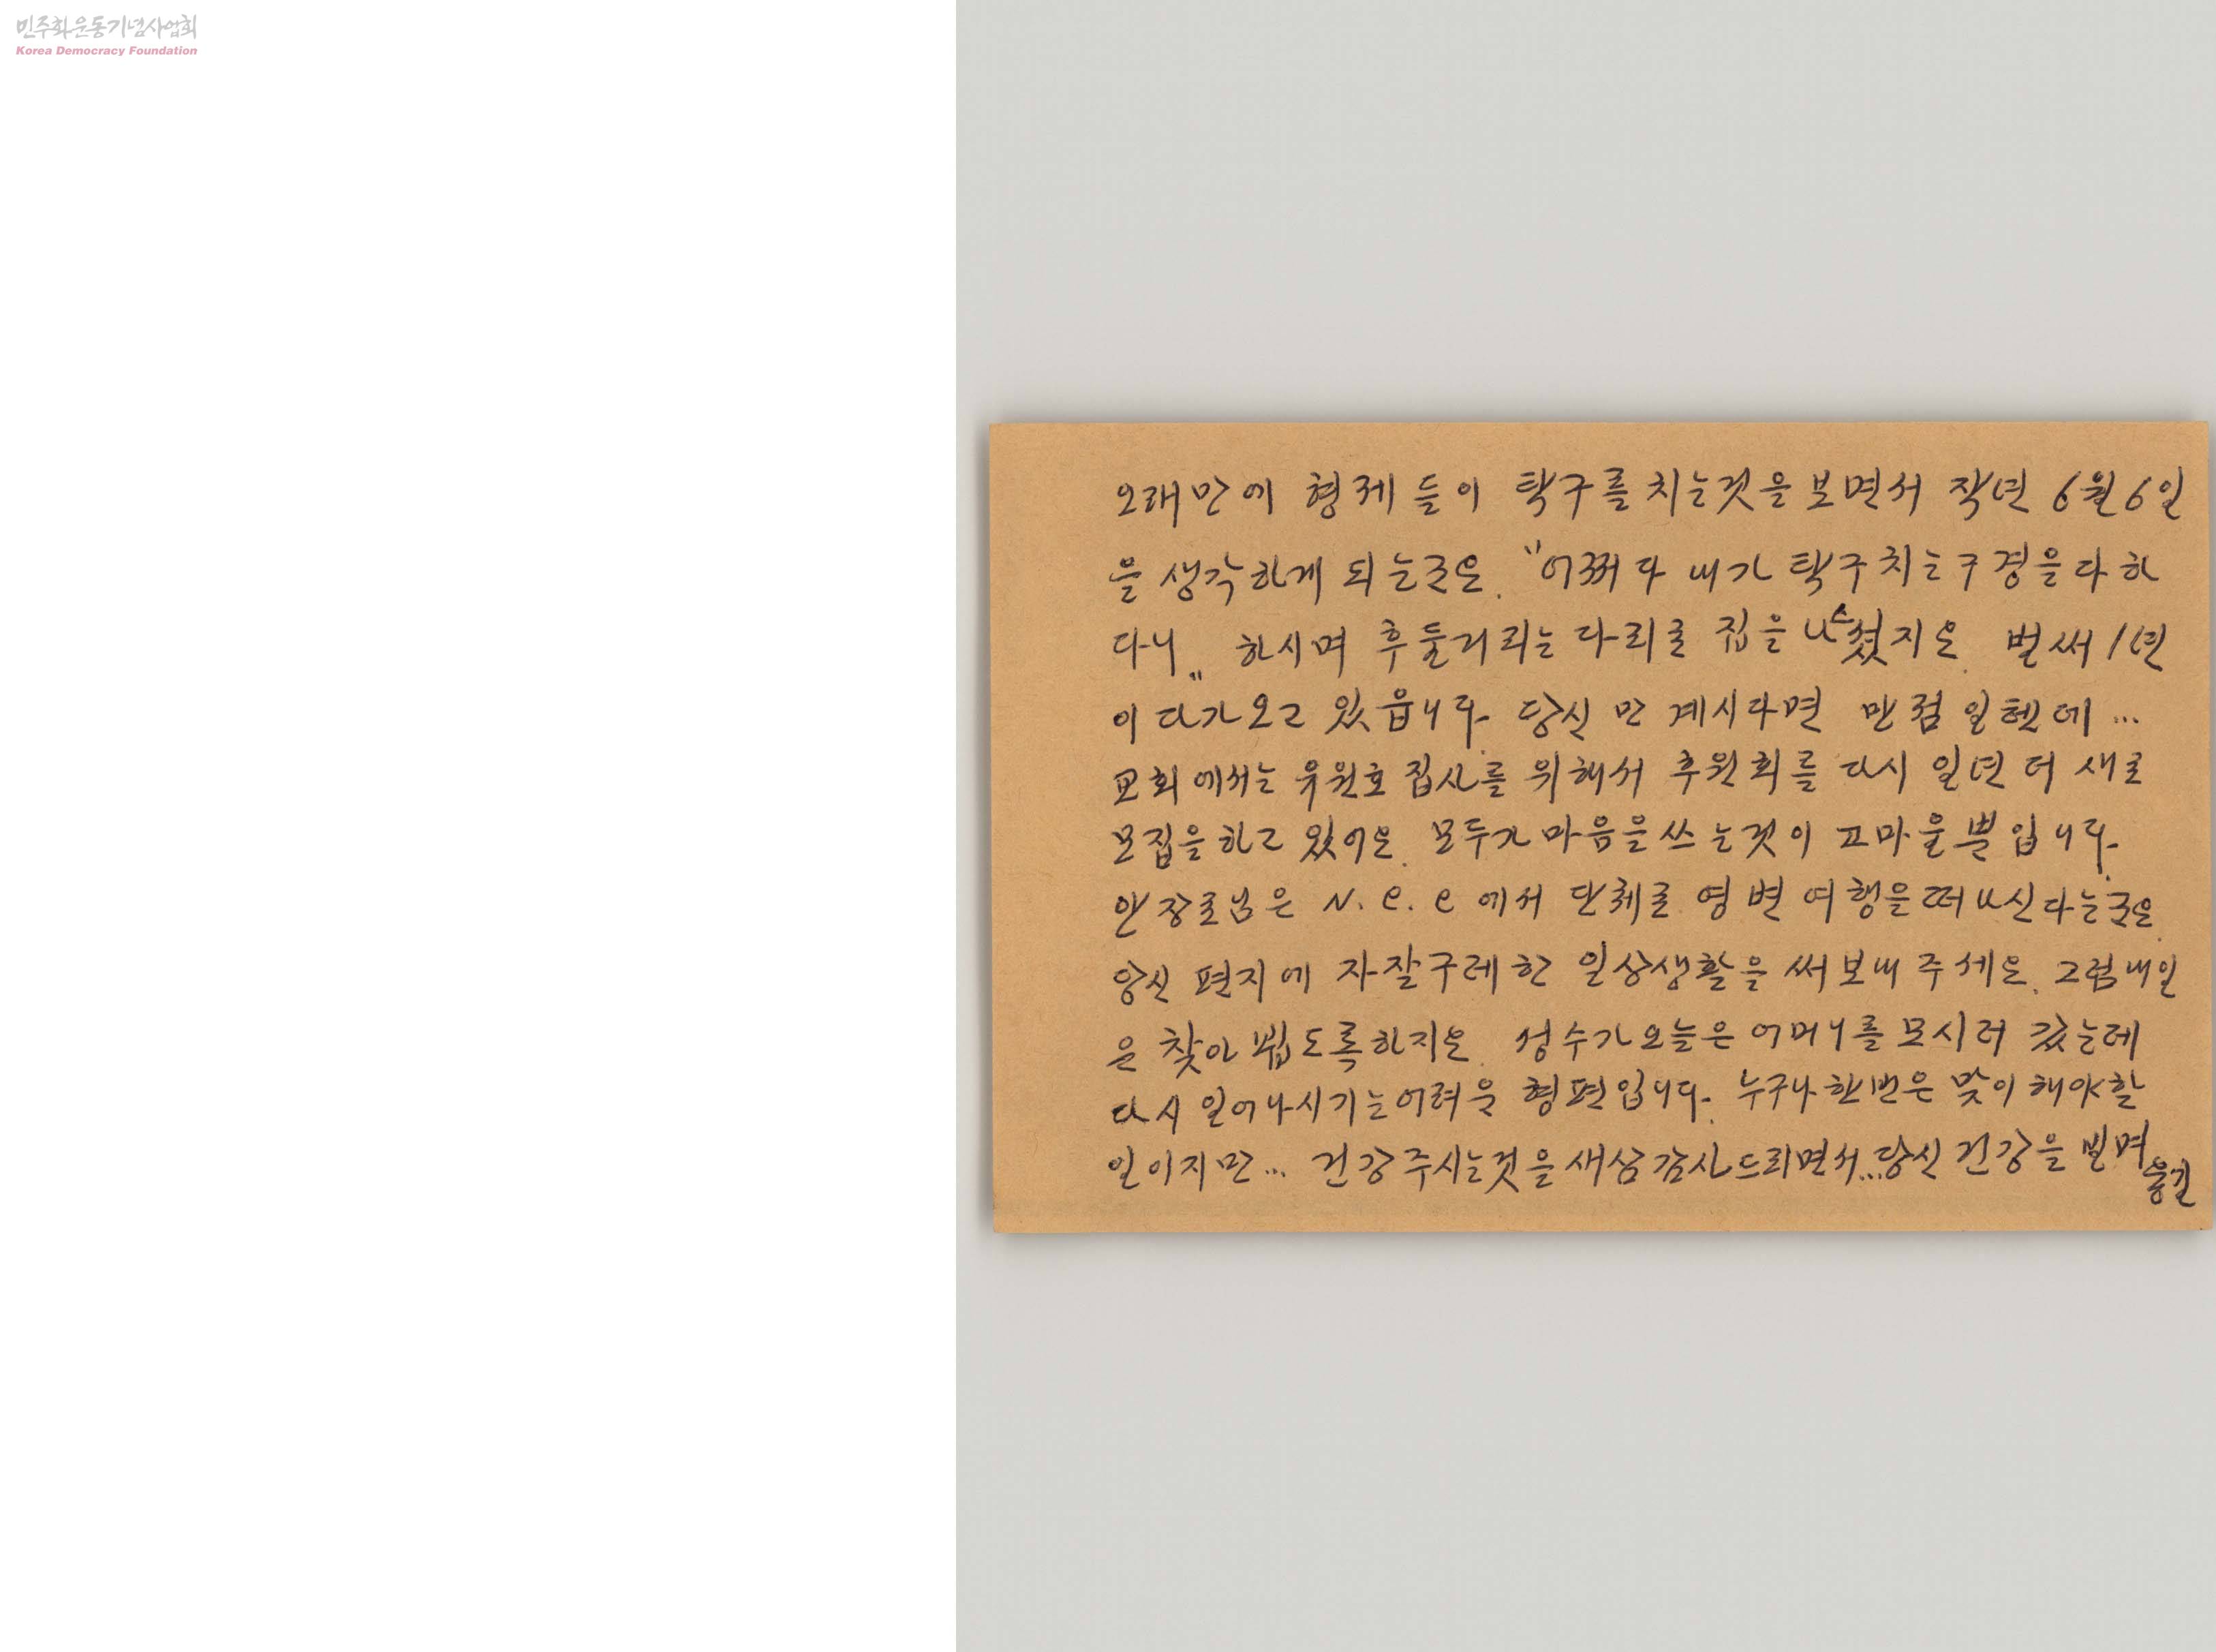 민주화운동기념사업회
Korea Democracy Foundation
오래만에 형제들이 탁구를 치는것을 보면서 작년 6월6일
을 생각하게 되는군요. "어쩌다 내가 탁구치는구경을다하
다니" 하시며 후둘거리는 다리로 집을 나스셨지요. 벌써 1년
이 다가오고 있읍니다. 당신만 계시다면 만점일텐데...
교회에서는 유원호집사를 위해서 후원회를 다시 일년 더 새로
모집을하고 있어요. 모두가마음을쓰는것이 고마울뿐입니다.
안장로님은 N.C.C에서 단체로 영변여행을떠나신다는군요.
당신 편지에 자잘구레한 일상생활을 써보내주세요. 그럼내일
은 찾아뵙도록하지요. 성수가오늘은어머니를 모시러 갔는데
다시 일어나시기는어려운 형편입니다. 누구나한번은 맞이해야할
일이지만... 건강주시는것을새삼감사드리면서...당신건강을 빌며
용길